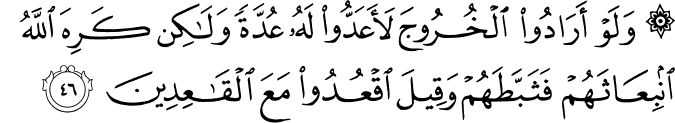 ۞ وَلَوْ أَرَادُوا۟ ٱلْخُرُوجَ لَأَعَدُّوا۟ لَهُۥ عُدَّةً وَلَـٰكِن كَرِهَ ٱللَّهُ
ٱنۢبِعَاثَهُمْ فَثَبَّطَهُمْ وَقِيلَ ٱقْعُدُوا۟ مَعَ ٱلْقَـٰعِدِينَ ٤٦